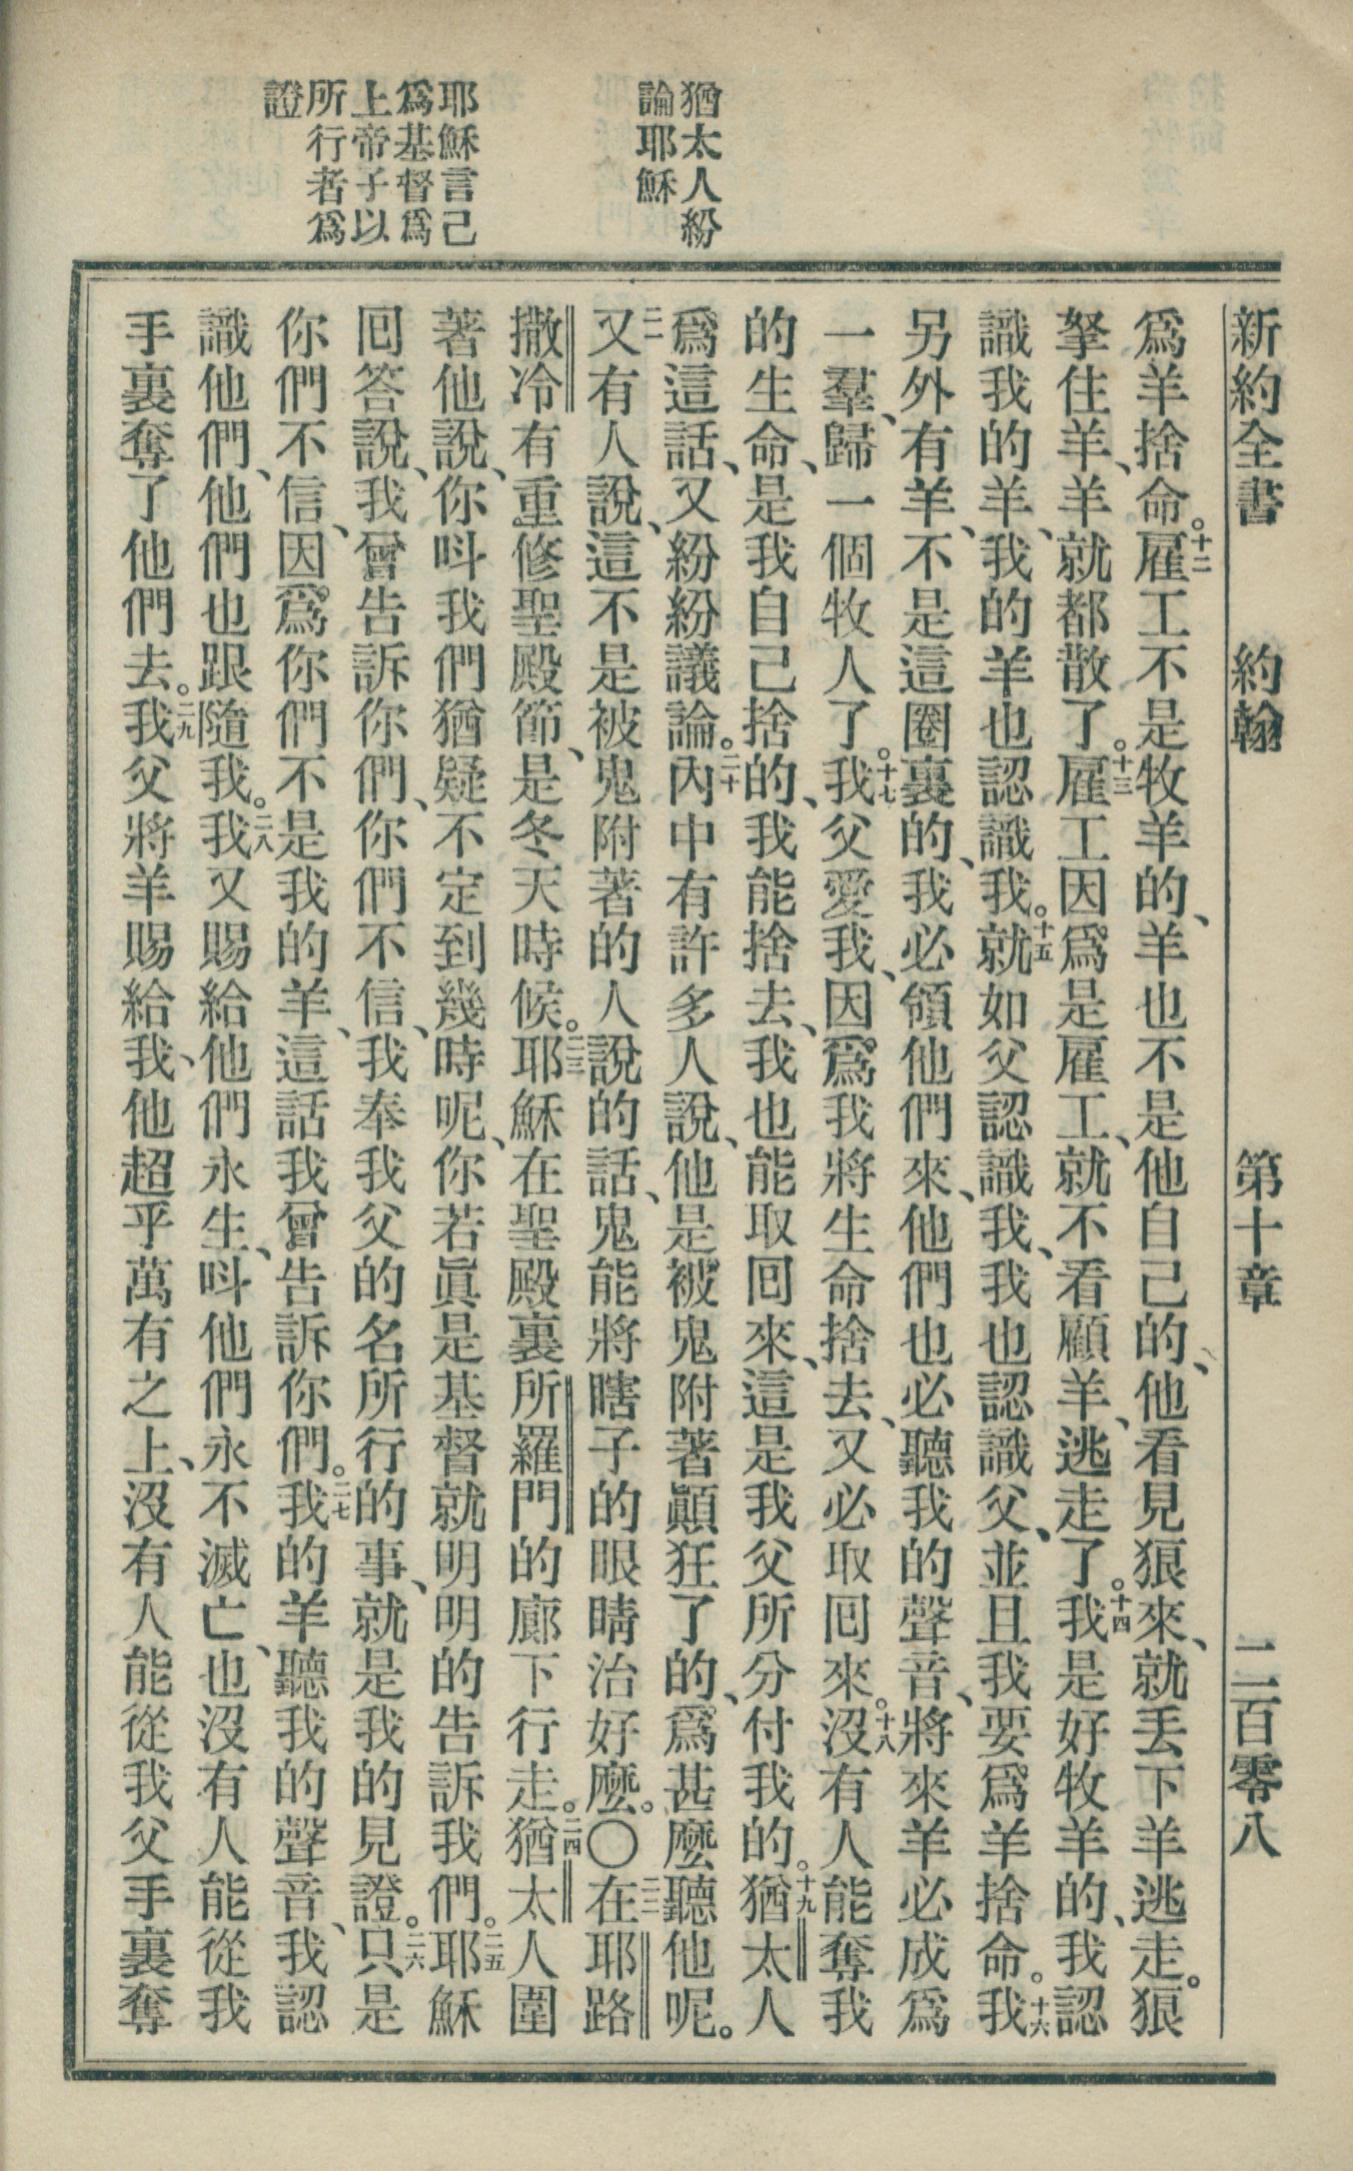 新約全書　約翰　第十章　二百零八
猶太人紛
論耶穌
耶穌言己
爲基督爲
上帝子以
所行者爲
證
爲羊捨命。十二雇工不是牧羊的、羊也不是他自己的、他看見狼來、就丟下羊逃走。狼
拏住羊、羊就都散了。十三雇工因爲是雇工、就不看顧羊、逃走了。十四我是好牧羊的、我認
識我的羊、我的羊也認識我。十五就如父認識我、我也認識父、並且我要爲羊捨命。十六我
另外有羊、不是這圈裏的、我必領他們來、他們也必聽我的聲音、將來羊必成爲
一羣、歸一個牧人了。十七我父愛我、因爲我將生命捨去、又必取囘來。十八沒有人能奪我
的生命、是我自己捨的、我能捨去、我也能取囘來、這是我父所分付我的。十九猶太人
爲這話、又紛紛議論。二十內中有許多人說、他是被鬼附著顚狂了的、爲甚麼聽他呢。
二一又有人說、這不是被鬼附著的人說的話、鬼能將瞎子的眼睛治好麼。〇二二在耶路
撒冷有重修聖殿節、是冬天時候。二三耶穌在聖殿裏所羅門的廊下行走。二四猶太人圍
著他說、你呌我們猶疑不定到幾時呢、你若眞是基督就明明的告訴我們。二五耶穌
囘答說、我曾告訴你們、你們不信、我奉我父的名所行的事、就是我的見證。二六只是
你們不信、因爲你們不是我的羊、這話我曾告訴你們。二七我的羊聽我的聲音、我認
識他們、他們也跟隨我。二八我又賜給他們永生、呌他們永不滅亡、也沒有人能從我
手裏奪了他們去。二九我父將羊賜給我、他超乎萬有之上、沒有人能從我父手裏奪